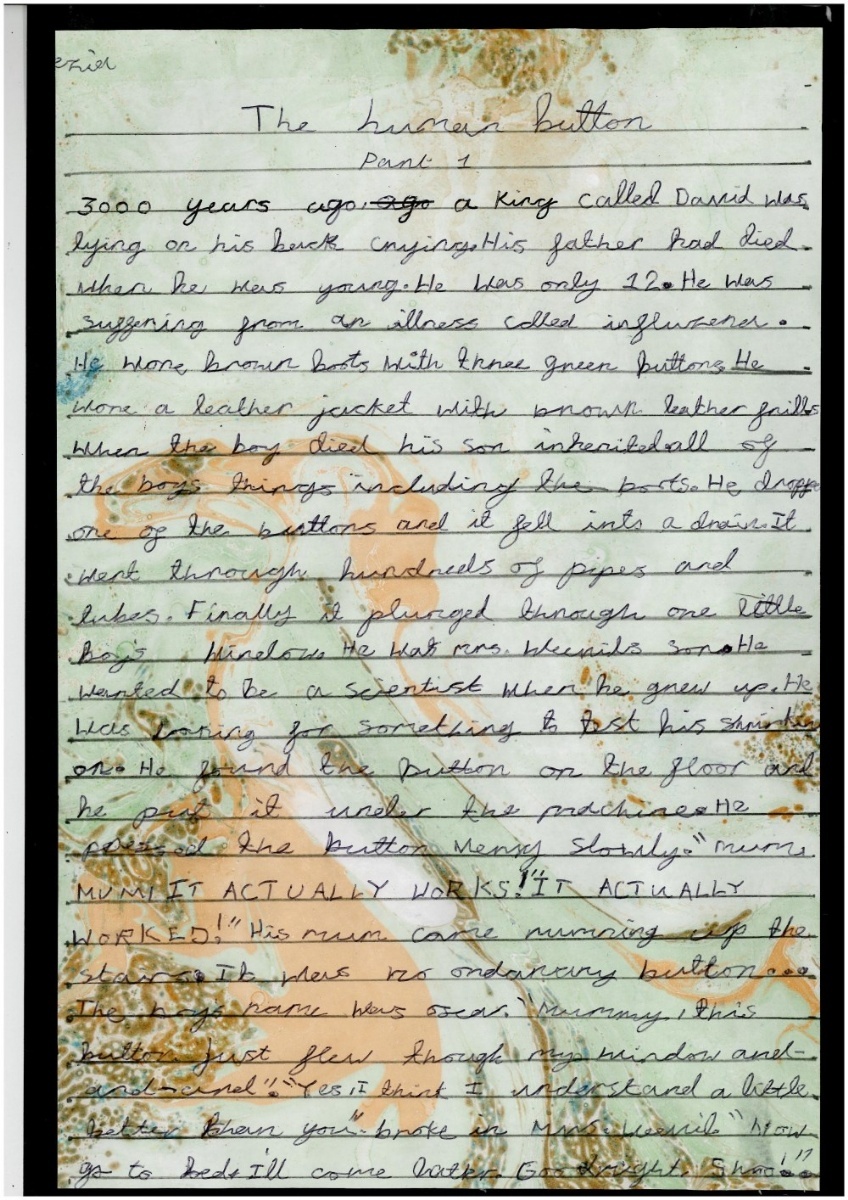 ezia
The human button
Part 1
3000 years ago, ago a King called David was
lying on his back crying. His father had died
when he was young. He was only 12. He was
suffering from an illness called influwzener.
He wore brown boots with three green buttons. He
wore a leather jacket with brown leather frills
When the boy died his son inherited all of
the boys things including the boots. He droppe
one of the buttons and it fell into a drain. It
went through hundreds of pipes and
tubes. Finally it plunged through one little
boy's window. He was mrs. Weevils son. He
wanted to be a scientist when he grew up. He
was looking for something to test his
on. He found the button on the floor and
he put it under the machine. He
pressed the button very slowly. "mum,
MUM! IT ACTUALLY WORKS! IT ACTUALLY
WORKED!" His mum came running up the
stairs. It was no ordanary button...
The boys name was oscar. "Mummy, this
button just flew though my window and-
and-and". "Yes, I think I understand a little
better than you" broke in Mrs. weevil" Now
go to bed. I'll come later. Goodnight,